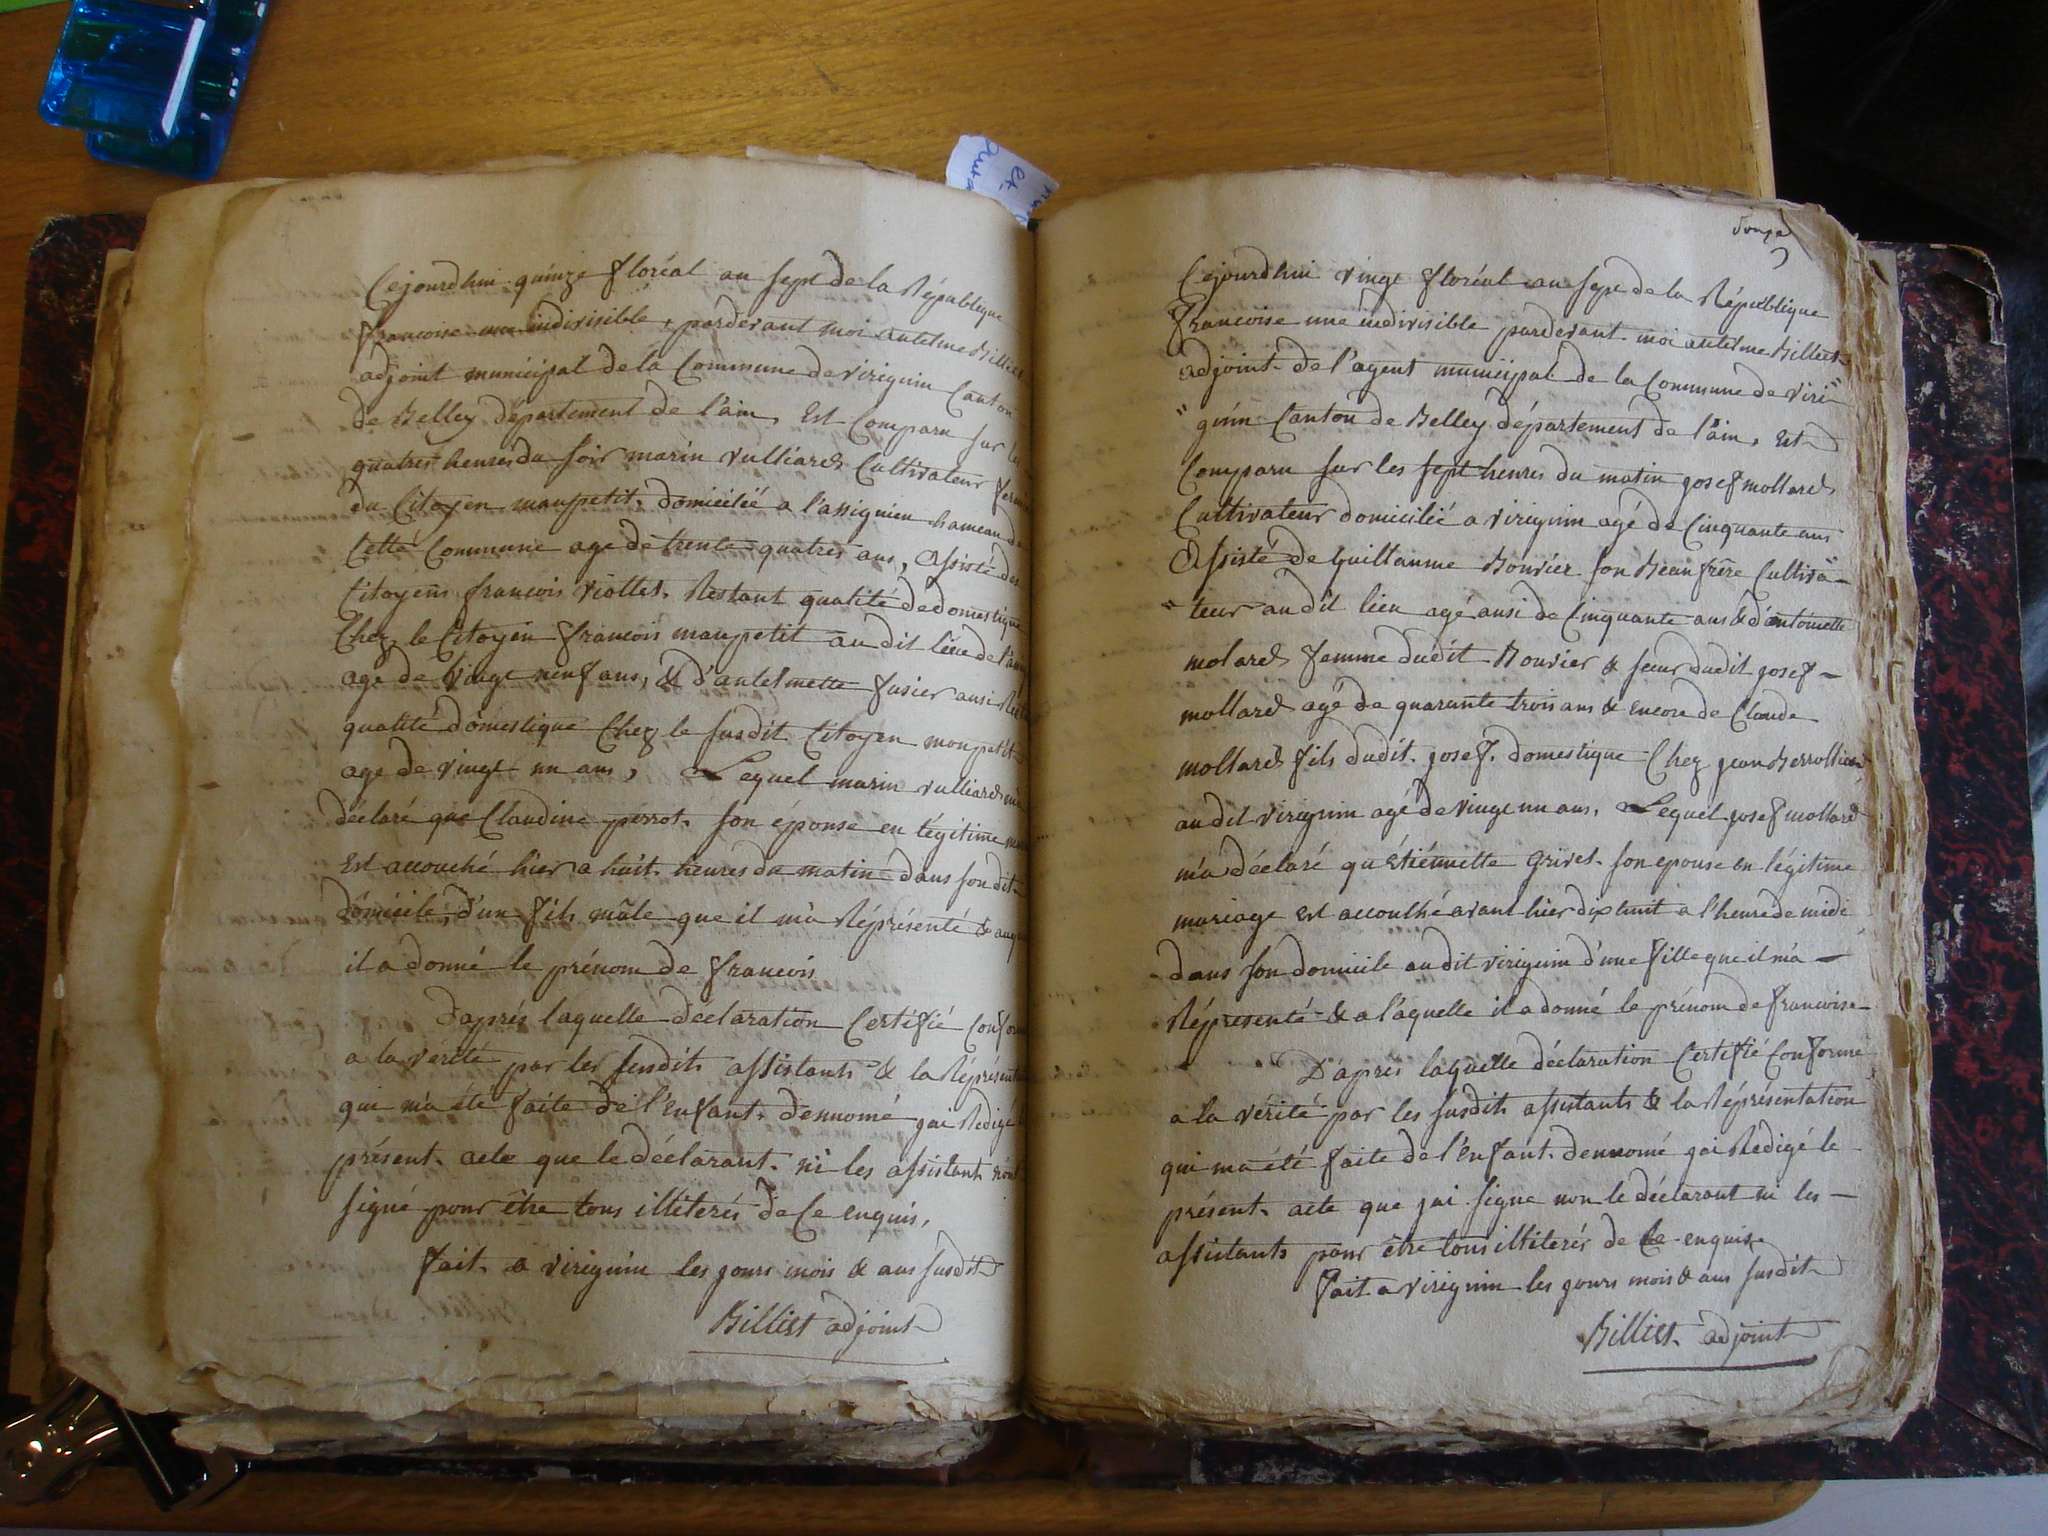 Cejourdhui quinze floréal an sept de la République
francoise une indivisible, pardevant moi antelme Billiet
adjoint municipal de la Commune de virignin Canton
de Belley département de l'ain, Est Comparu sur les
quatres heures du soir marin vulliard Cultivateur
du Citoyen maupetit, domicilié a l'assignieu hameau de
Cette Commune age de trente quatres ans, Assisté des
Citoyens francois viollet, Restant qualité de domestique
Chez le Citoyen francois maupetit au dit lieue de
age de vingt neuf ans, & d'antelmette fusier ausi
qualité domestique Chez le susdit Citoyen maupetit
age de vingt un ans, Lequel marin vulliard m'a
déclaré que Claudine perrot son éponse en légitime
Est accouché hier a huit heures du matin dans son dit
domicile d'un fils mâle que il m'a Réprésenté &
il a donné le prénom de francois
D'aprés laquelle déclaration Certifié
a la vérité par les susdits assistants & la
qui m'a été faite de l'enfant dennomé jai Redigé
présent acte que le déclarant ni les assistant n'ont
signé pour être tous illiterés de Ce enquis,
fait a virignin les jours mois & ans susdit
Billiet adjoint
Cejourdhui vingt floréal an sept de la République
francoise une indivisible pardevant moi antelme Billiet
adjoint de l'agent municipal de la Commune de viri"
"gnin Canton de Belley département de l'ain, Est
Comparu sur les sept heures du matin josef mollard
Cultivateur domicilié a virignin agé de Cinquante ans
Assisté de guillaume Bouvier son Beanfrêre Cultiva"
"teur au dit lieu agé ausi de Cinquante ans & d'antoinette
molard femme dudit Bouvier & sœur dudit josef
mollard agé de quarante trois ans & encore de Claude
mollard fils dudit josef domestique Chez jean
au dit virignin agé de vingt un ans, Lequel josef mollard
m'a déclaré qu'Etiénnette Grivet son epouse en légitime
mariage est accouché avant hier dix huit a l'heure de midi
dans son domicile au dit virignin d'une fille que il m'a
Réprésenté & a láquelle il a donné le prénom de francoise
D'aprés laquelle déclaration Certifié Conforme
a la vérité par les susdits assistants & la Réprésentation
qui ma été faite de l'enfant dennomé jai Redigé le
présent acte que jai signe non le déclarant ni les
assistants pour être tous illiterés de Ce enquis
fait a virignin les jours mois & ans susdit
Billiet adjoint